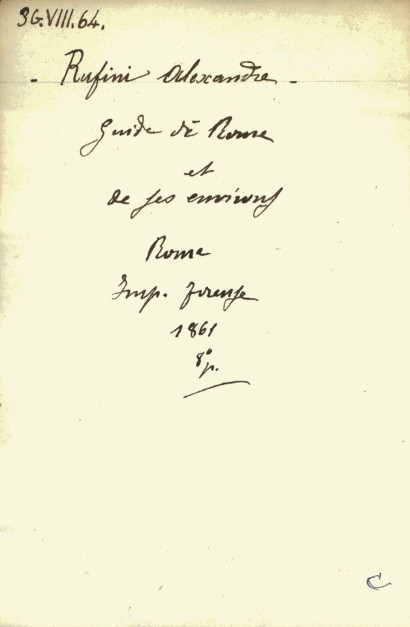 3G.VIII.64.
- Rufini Alexandre -
Guide de Rome
et
de ses environs
Rome
Imp. forense
1861
8° p.
C